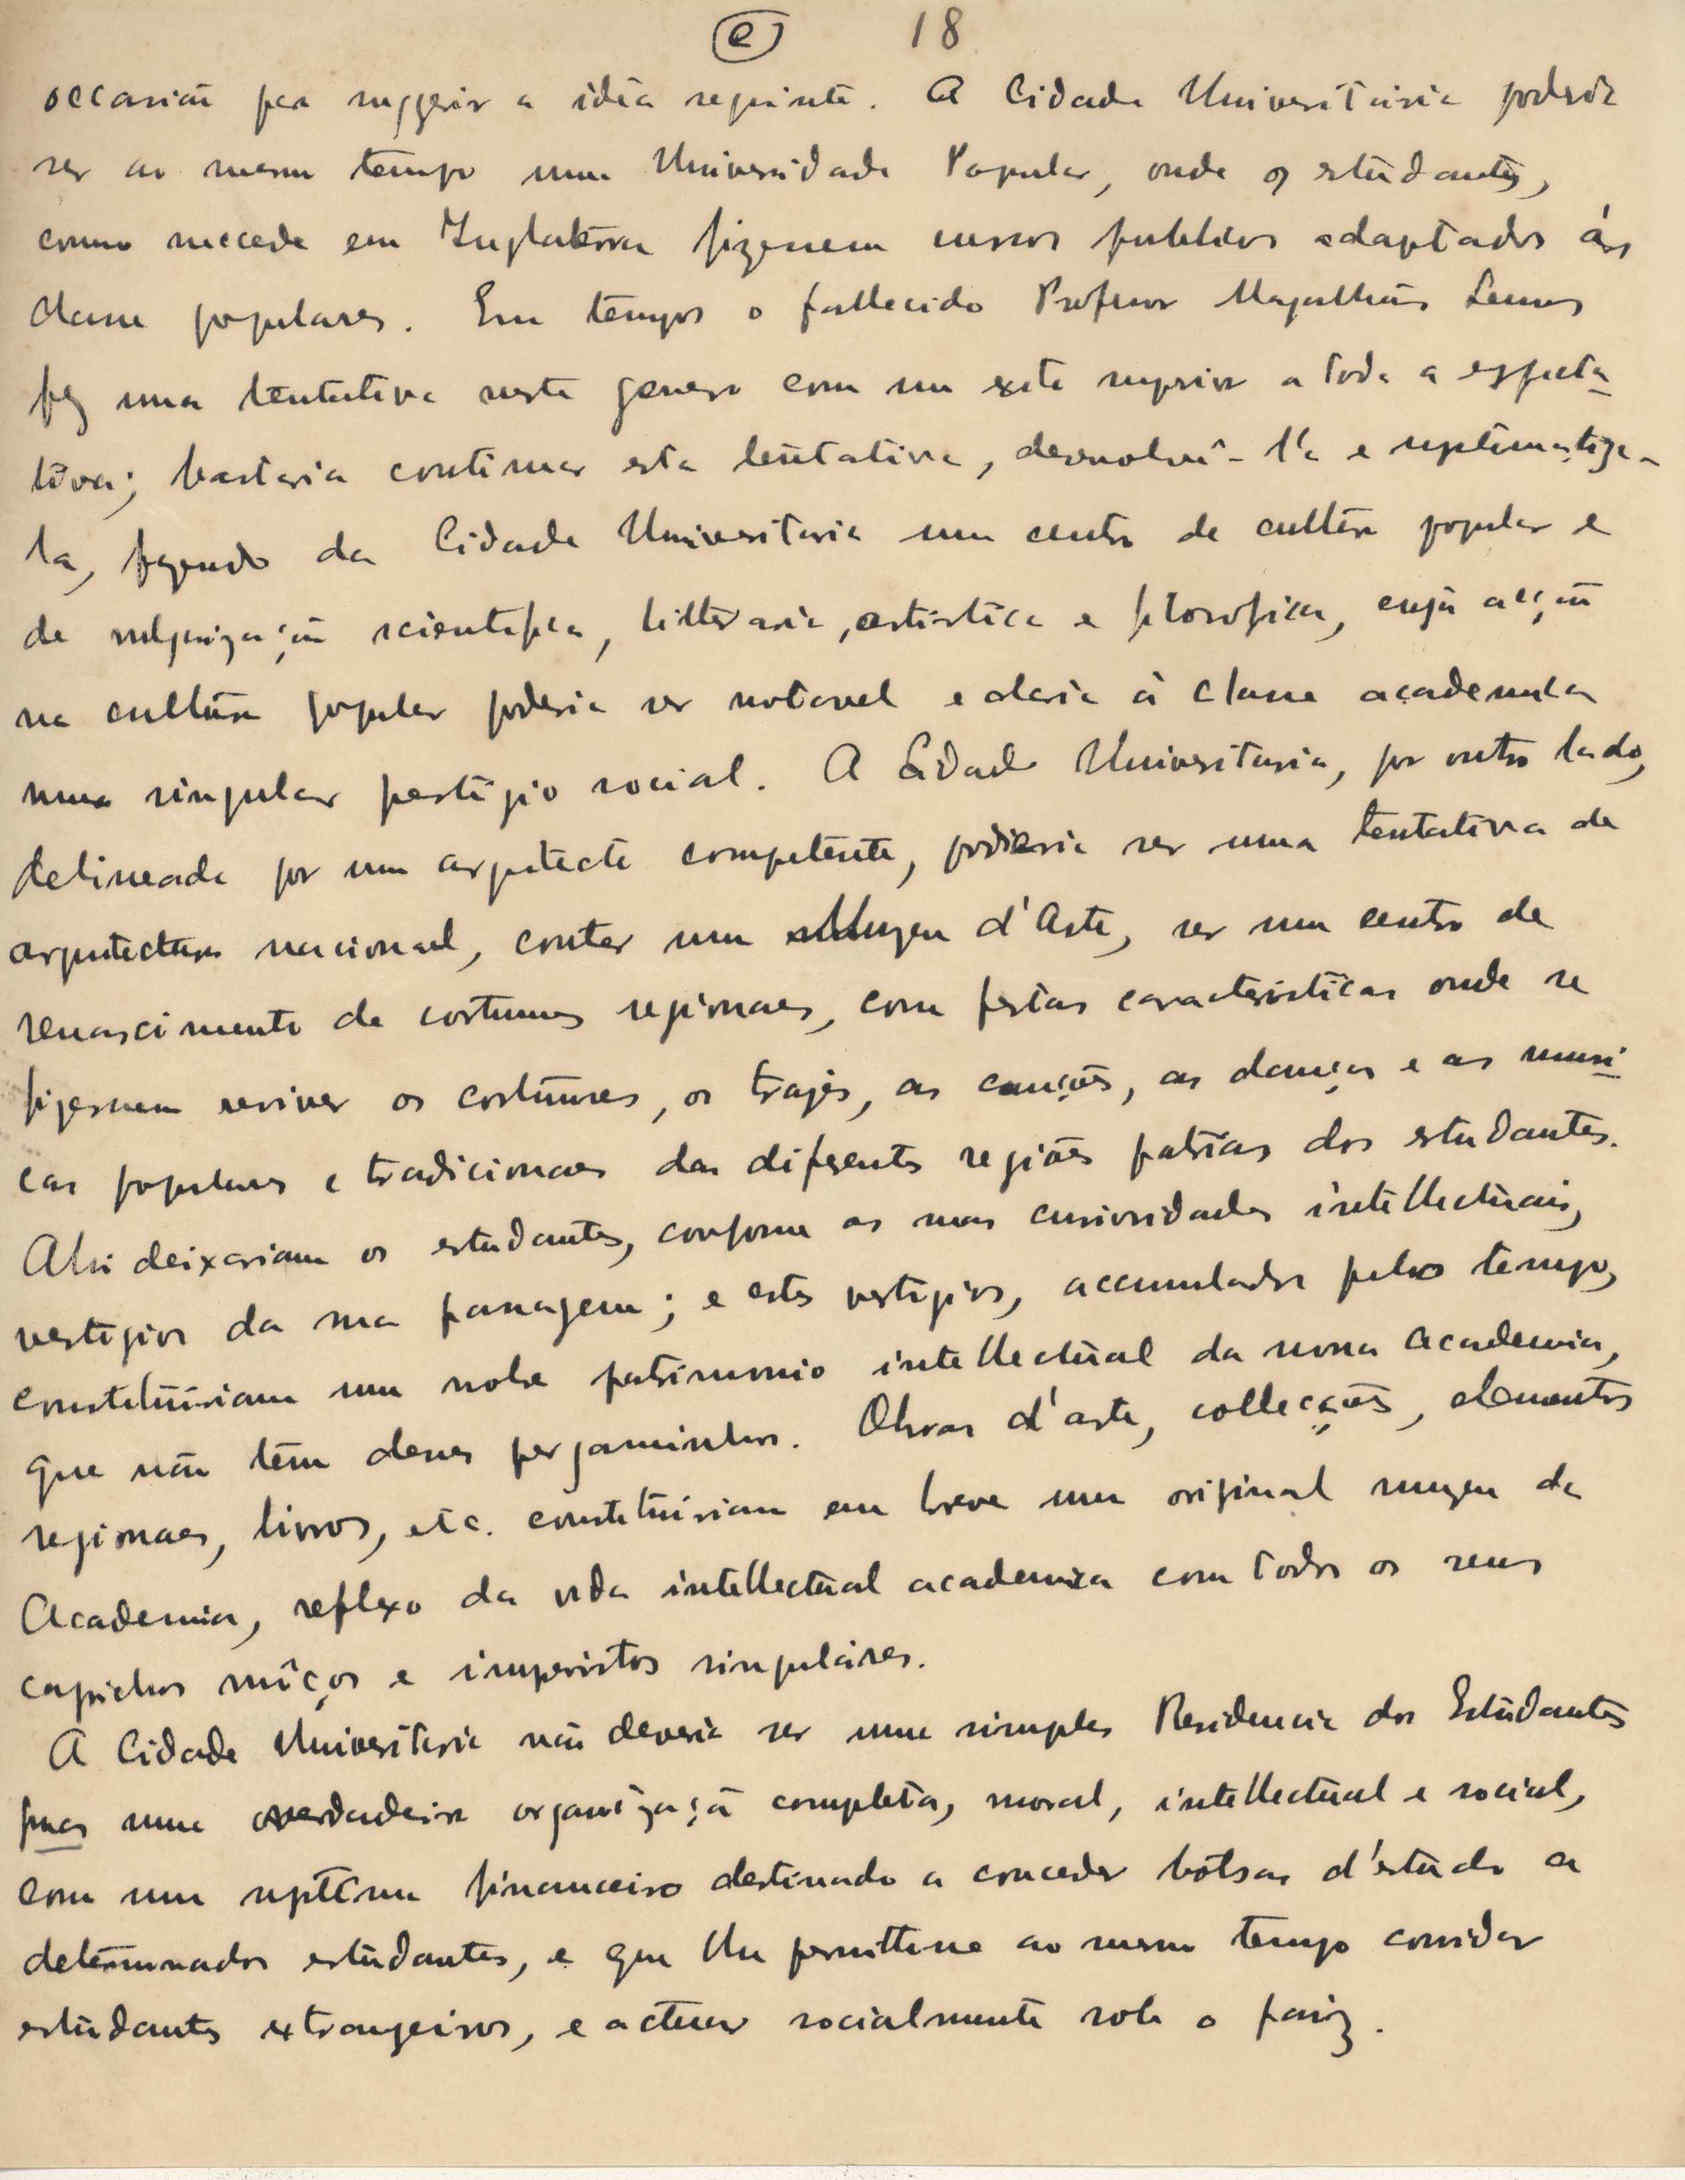 (e) 18
occasião para suggerir a idéa seguinte. A Cidade Universitaria poderia
ser ao mesmo tempo uma Universidade Popular, onde os estudantes,
como succede em Inglaterra fizessem cursos publicos adaptados ás
classes populares. Em tempos o fallecido Professor Magalhães Lemos
fez uma tentativa neste genero com um exito superior a toda a espectа-
tiva; bastaria continuar esta tentativa, desenvolvê-l'a e systematiza-
la, fazendo da Cidade Universitaria um centro de cultura popular e
de vulgarização scientifica, litteraria, artistica e filosofica, cuja acção
na cultura popular poderia ser notavel e daria á classe academica
um singular prestigio social. A Cidade Universitaria, por outro lado,
delineada por um arquitecto competente, poderia ser uma tentativa de
arquitectura nacional, conter um Muzeu d'Arte, ser um centro de
renascimento de costumes regionaes, com festas caracteristicas onde se
fizessem reviver os costumes, os trajes, as canções, as danças e as musi-
cas populares e tradicionaes das diferentes regiões patrias dos estudantes.
Ahi deixariam os estudantes, conforme as suas curiosidades intellectuais,
vestigios da sua passagem; e estes vestigios, accumulados pelo tempo,
constituiriam um nobre patrimonio intellectual da nossa Academia,
que não têm desses pergaminhos. Obras d'arte, collecções, elementos
regionaes, livros, etc. constituiriam em breve um original muzeu da
Academia, reflexo da vida intellectual academica com todos os seus
caprichos môços e imprevistos singulares.
A Cidade Universitaria não deveria ser uma simples Residencia dos Estudantes
mas uma verdadeira organização completa, moral, intellectual e social,
com um systema financeiro destinado a conceder bolsas d'estudo a
determinados estudantes, e que lhe permittisse ao mesmo tempo convidar
estudantes extrangeiros, e actuar socialmente sobre o paiz.